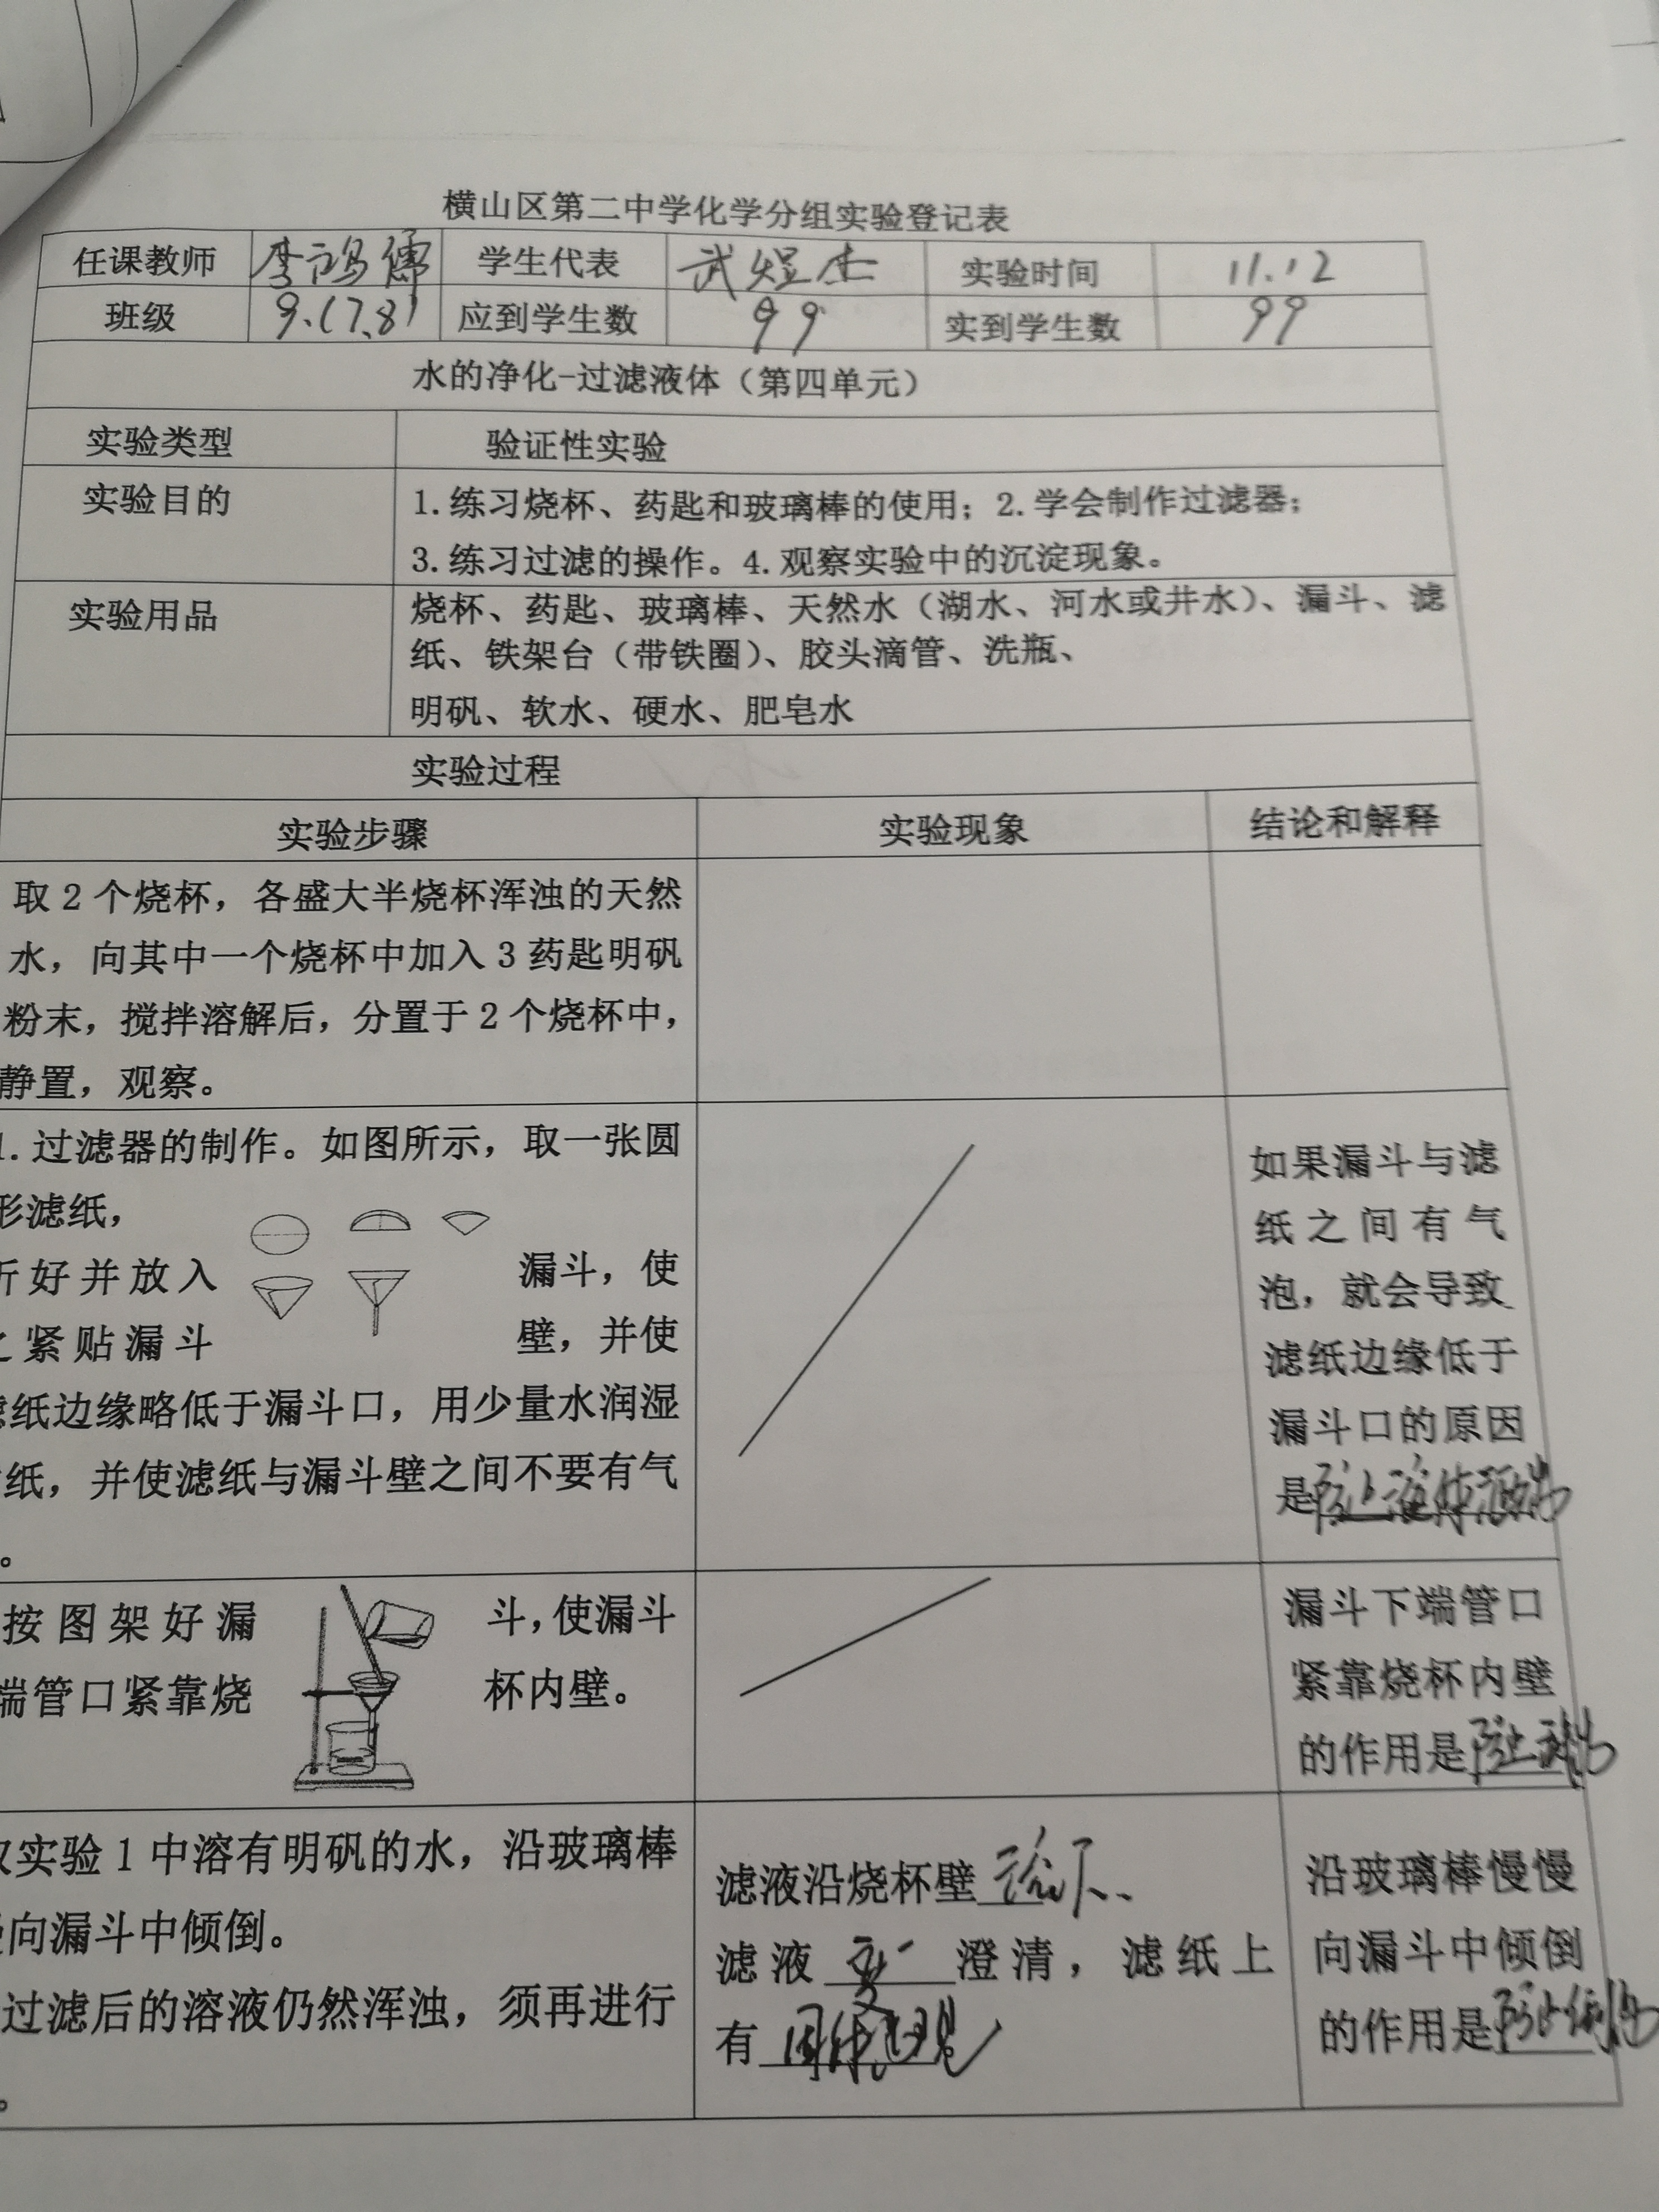 横山区第二中学化学分组实验登记表
任课教师 李鸿儒 学生代表 武煜杰 实验时间 11.12
班级 9.(7.8) 应到学生数 99 实到学生数 99
水的净化-过滤液体（第四单元）
实验类型 验证性实验
实验目的 1.练习烧杯、药匙和玻璃棒的使用；2.学会制作过滤器；
3.练习过滤的操作。4.观察实验中的沉淀现象。
实验用品 烧杯、药匙、玻璃棒、天然水（湖水、河水或井水）、漏斗、滤
纸、铁架台（带铁圈）、胶头滴管、洗瓶、
明矾、软水、硬水、肥皂水
实验过程
实验步骤 实验现象 结论和解释
取2个烧杯，各盛大半烧杯浑浊的天然
水，向其中一个烧杯中加入3药匙明矾
粉末，搅拌溶解后，分置于2个烧杯中，
静置，观察。
1.过滤器的制作。如图所示，取一张圆
形滤纸，
折好并放入 漏斗，使
之紧贴漏斗 壁，并使
滤纸边缘略低于漏斗口，用少量水润湿
纸，并使滤纸与漏斗壁之间不要有气
。
如果漏斗与滤
纸之间有气
泡，就会导致
滤纸边缘低于
漏斗口的原因
是防止液体洒出
按图架好漏 斗，使漏斗
端管口紧靠烧 杯内壁。
漏斗下端管口
紧靠烧杯内壁
的作用是防止溅出
取实验1中溶有明矾的水，沿玻璃棒
慢向漏斗中倾倒。
过滤后的溶液仍然浑浊，须再进行
。
滤液沿烧杯壁流下、
滤液变澄清，滤纸上
有
沿玻璃棒慢慢
向漏斗中倾倒
的作用是防止